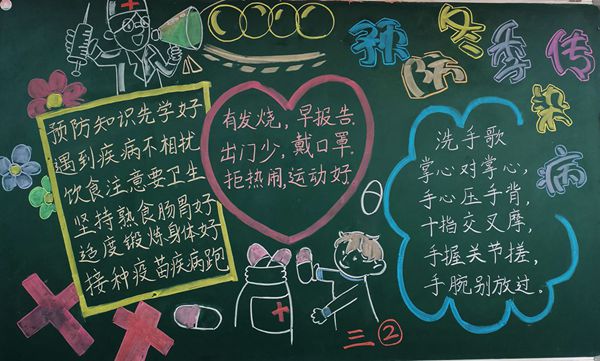 预防冬季传染病
预防知识先学好
遇到疾病不相扰
饮食注意要卫生
坚持熟食肠胃好
适度锻炼身体好
接种疫苗疾病跑
有发烧，早报告.
出门少，戴口罩.
拒热闹，运动好.
洗手歌
掌心对掌心，
手心压手背，
十指交叉摩，
手握关节搓，
手腕别放过。
三②